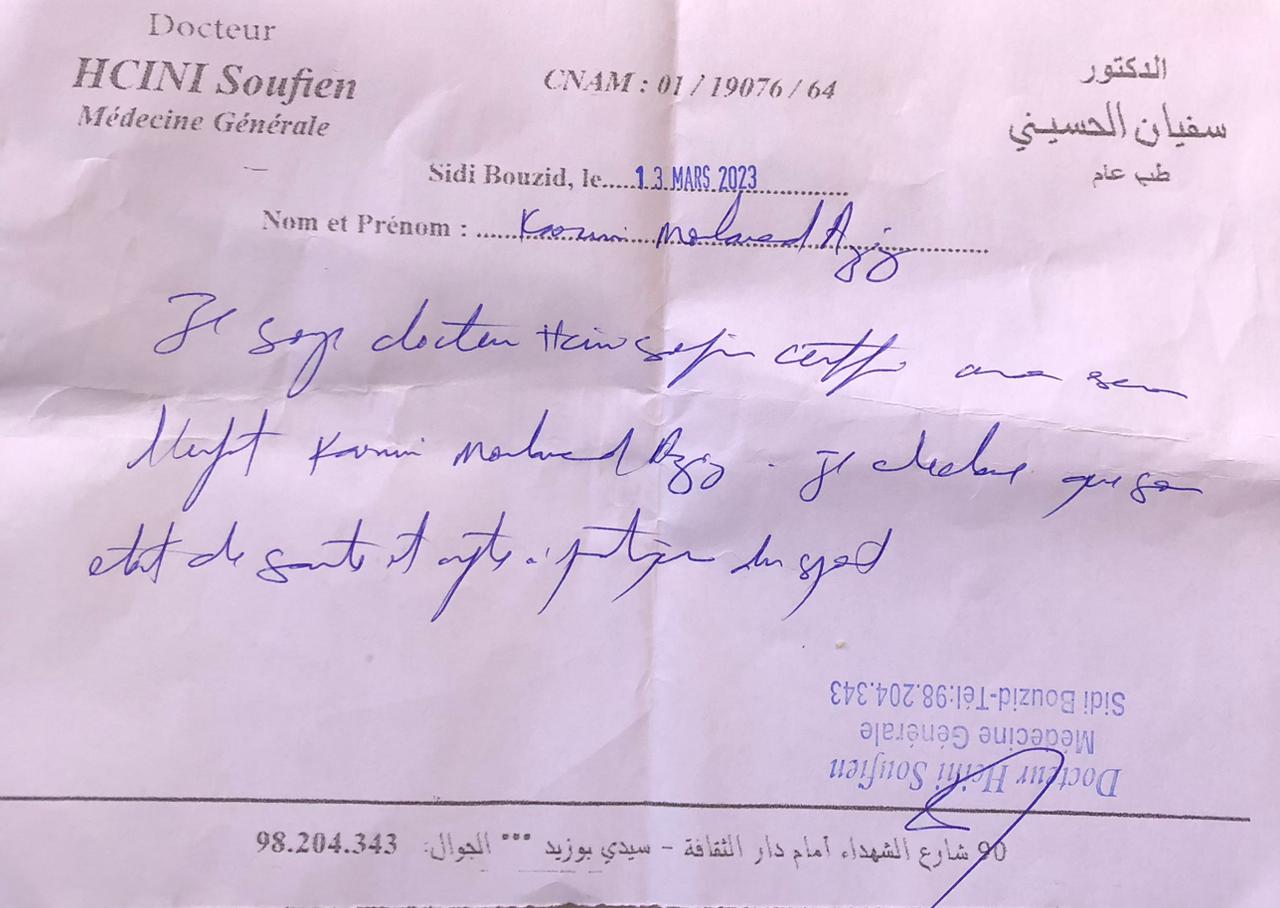 Docteur
HCINI Soufien
Médecine Générale
CNAM : 01 / 19076 / 64
الدكتور
سفيان الحسيني
طب عام
Sidi Bouzid, le.....13 MARS 2023..............
Nom et Prénom : ...... Mohamed Aziz
Je docteur Hcini certifie
Mohamed Aziz . je declare que son
etat de santé et apte a pratiquer du sport
Docteur Hcini Soufien
Médecine Générale
Sidi Bouzid-Tél:98.204.343
90 شارع الشهداء أمام دار الثقافة - سيدي بوزيد *** الجوال: 98.204.343